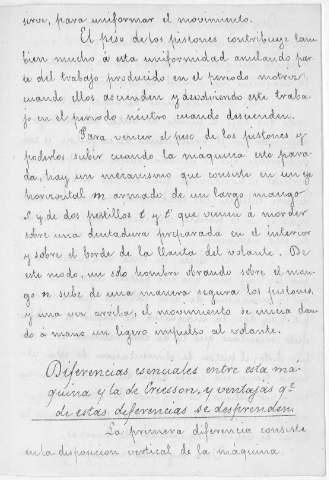 sirve, para uniformar el movimiento.
El peso de los pistones contribuye tam
bien mucho á esta uniformidad anulando par
te del trabajo producido en el periodo motriz
cuando ellos ascienden y devolviendo este traba
jo en el periodo neutro cuando descienden.
Para vencer el peso de los pistones y
poderlos subir cuando la maquina esta para
da, hay un mecanismo que consiste en un eje
horizontal m armado de un largo mango
y de dos pestillos t y t' que vienen á morder
sobre una dentadura preparada en el interior
y sobre el borde de la llanta del volante. De
este modo, un solo hombre obrando sobre el man
go n sube de una manera segura los pistones,
y una vez arriba, el movimiento se inicia dan
do á mano un ligero impulso al volante.
Diferencias esenciales entre esta má
quina y la de Ericsson, y ventajas qe
de estas diferencias se desprenden.
La primera diferencia consiste
en la disposicion vertical de la máquina